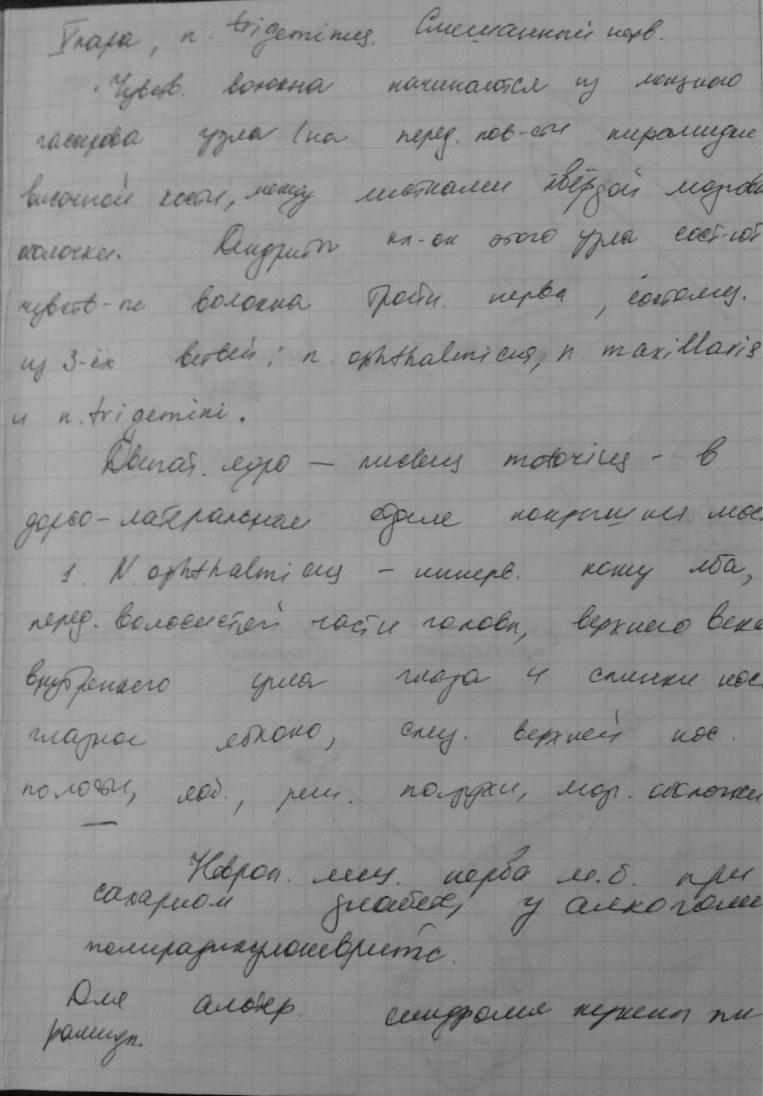 V пара, n. trigeminus. Смешанный нерв.
Чувств. волокна начинаются из мощного
гассерова узла (на перед. пов-сти пирамидки
височной кости, между листками твёрдой мозгово
оболочки. Дендриты кл-ок этого узла сост-ют
чувств-ые волокна тройн. нерва, состоящ.
из 3-ёх ветвей: n. ophthalmicus, n. maxillaris
и n. trigemini.
Двигат. ядро — nucleus motorius - в
дорсо-латеральном отделе покрышки мос
1. N. ophthalmicus - иннерв. кожу лба,
перед. волосистой части головы, верхнего века
внутреннего угла глаза и спинки нос
глазное яблоко, слиз. верхней нос.
полости, лоб., реш. пазухи, мозг. оболочки
Невроп. лиц. нерва м.б. при
сахарном диабете, у алкоголи
полирадикулоневрите.
Для альтер. синдрома нужны пи
рамидн.